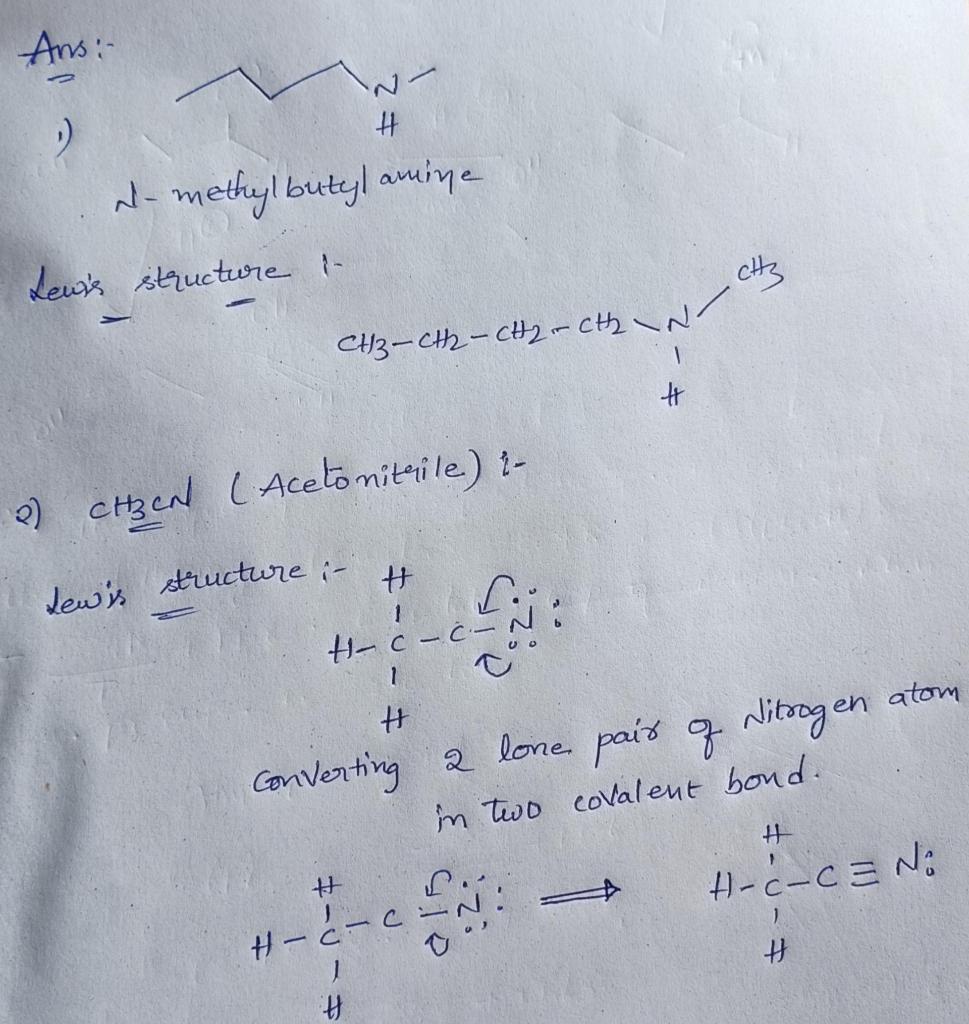 Ans :-
1)
N -
H
N - methyl butyl amine
Lewis structure :-
CH3 - CH2 - CH2 - CH2 \ N / CH3
|
H
2) CH3CN (Acetonitrile) :-
Lewis structure :- H
|
H - C - C - N :
|
H
Converting 2 lone pair of Nitrogen atom
in two covalent bond.
H H
H - C - C - N : ⟹ H - C - C ≡ N :
H H